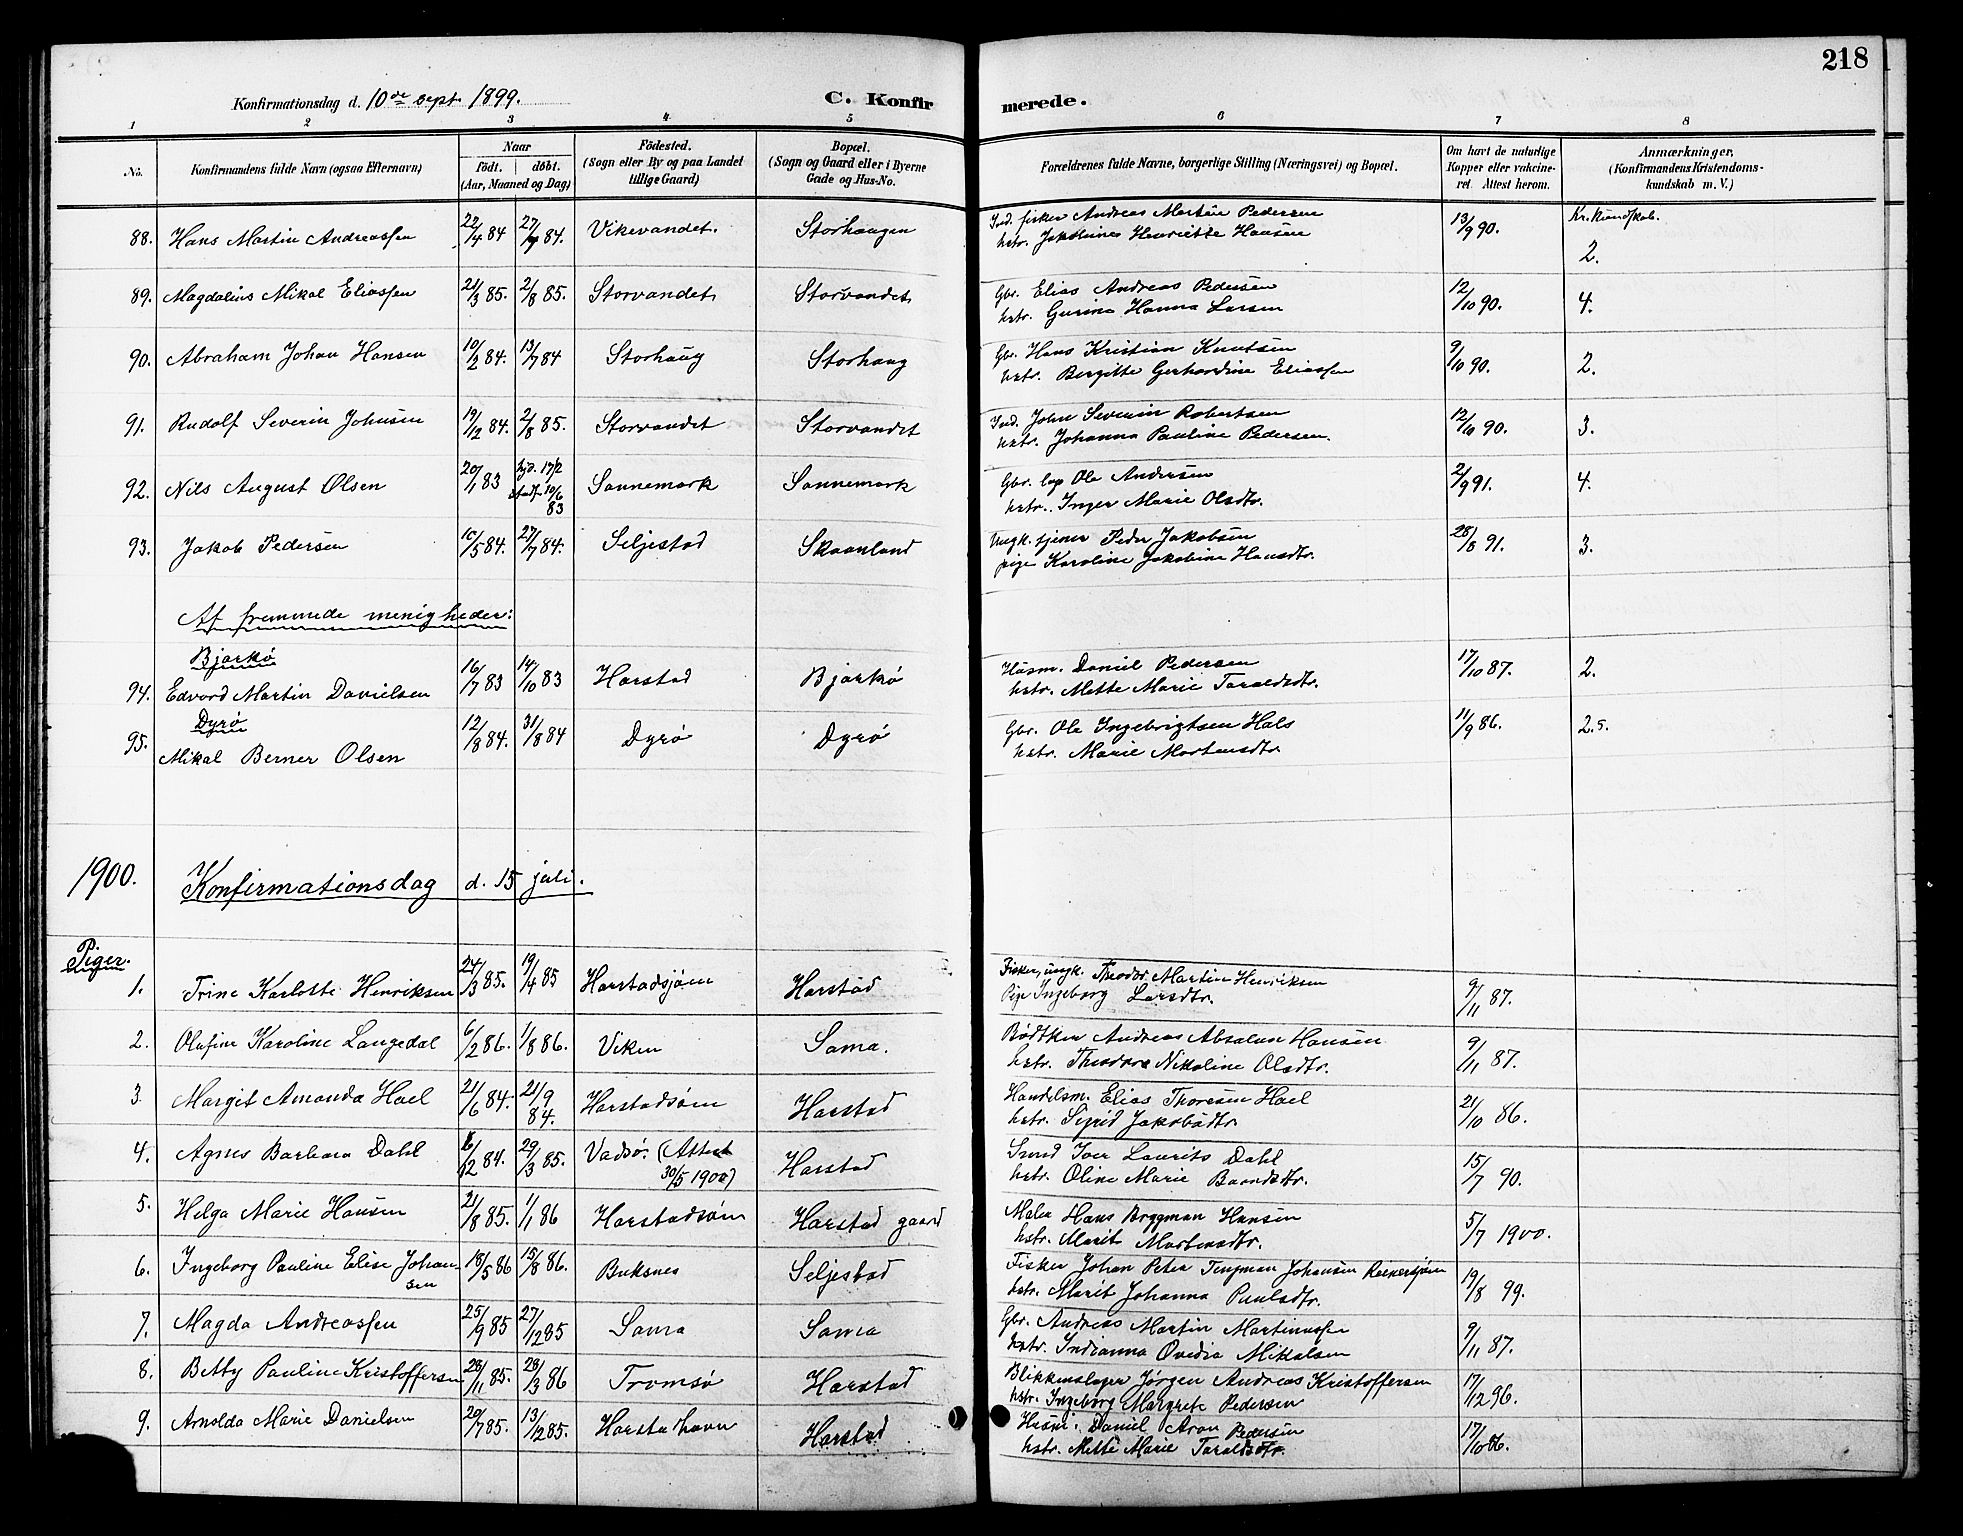 218
Konfirmationsdag d. 10de sept. 1899. C. Konfirmerede.
1 2 3 4 5 6 7 8
No. Konfirmandens fulde Navn (ogsaa Efternavn) Naar födt. döbt. (Aar, Maaned og Dag) Födested. (Sogn eller By og paa Landet tillige Gaard) Bopæl. (Sogn og Gaard eller i Byerne Gade og Hus-No. Forældrenes fulde Navne, borgerlige Stilling (Næringsvei) og Bopæl. Om havt de naturlige Kopper eller vakcineret. Attest herom. Anmærkninger, (Konfirmandens Kristendomskundskab m. V.)
88. Hans Martin Andreassen 22/4 84 27/7 84. Vikevandet. Storhaugen Ind. fisker Andreas Martin Pedersen 13/9 90. Kr. kundskab.
hstr. Henriette Hansen 2.
89. Magdalius Mikal Eliassen 21/3 85. 2/8 85. Storvandet Storvandet Gbr. Elias Andreas Pedersen 12/10 90. 4.
hstr. Gurine Hanna Larsen
90. Abraham Johan Hansen 10/2 84. 13/7 84 Storhaug Storhaug Gbr. Hans Kristian Knutsen 9/10 90. 2.
hstr. Bergitte Gerhardine Eliassen
91. Rudolf Severin Johnsen 19/12 84. 2/8 85. Storvandet Storvandet Ind. John Severin Robertsen 12/10 90. 3.
hstr. Johanna Pauline Pedersen.
92. Nils August Olsen 20/1 83 hjd. 17/2 stadf. 10/6 83 Sannemark Sannemark Gbr. Ole Andersen 2/9 91. 4.
hstr. Inger Marie Olsdtr.
93. Jakob Pedersen 10/5 84. 27/7 84. Seljestad Skaanland Ungk. tjener Peder Jakobsen 28/8 91. 3.
pige Karoline Jakobine Hansdtr.
Af fremmede menigheder:
Bjarkö
94. Edvard Martin Danielsen 16/7 83 14/10 83 Harstad Bjarkö Husm. Daniel Pedersen 17/10 87. 2.
hstr. Mette Marie Taraldsdtr.
Dyrö
95. Mikal Berner Olsen 12/8 84. 31/8 84 Dyrö Dyrö Gbr. Ole Ingebrigtsen Hals 11/9 86. 2.5.
hstr. Marie Mortensdtr.
1900. Konfirmationsdag d. 15 juli.
Piger.
1. Trine Karlotte Henriksen 24/3 85. 19/4 85 Harstadsjöen Harstad Fisker, ungk. Theodor Martin Henriksen 9/11 87.
Pige Ingeborg Larsdtr.
2. Olufine Karoline Langedal 6/2 86. 1/8 86. Viken Sama. Bödtker Andreas Absalon Hansen 9/11 87.
hstr. Theodora Nikoline Olsdtr.
3. Margit Amanda Hoel 21/6 84. 21/9 84. Harstadsöen Harstad Handelsm. Elias Thoresen Hoel 21/10 86.
hstr. Sigrid Jakobsdtr
4. Agnes Barbara Dahl 6/12 84. 29/3 85. Vadsö. (Attest 30/5 1900) Harstad Smed Iver Laurits Dahl 15/7 90.
hstr. Oline Marie Barndsdtr.
5. Helga Marie Hansen 21/8 85. 1/1 86 Harstadsöen Harstad gaard Maler Hans Bryggman Hansen 5/7 1900.
hstr. Marit Mortensdtr.
6. Ingeborg Pauline Elise Johansen 18/5 86 15/8 86. Buksnes Seljestad Fisker Johan Peter Johansen 19/8 99.
hstr. Marit Johanna Paulsdtr.
7. Magda Andreassen 25/9 85 27/12 85 Sama Sama Gbr. Andreas Martin Martinussen 9/11 87.
hstr. Indianna Ovedia Mikalsen
8. Betty Pauline Kristoffersen 28/11 85. 28/3 86 Tromsö Harstad Blikkenslager Jörgen Andreas Kristoffersen 17/12 96.
hstr. Ingeborg Margrete Pedersen
9. Arnolda Marie Danielsen 20/7 85. 13/12 85. Harstadhavn Harstad Husm. Daniel Aron Pedersen 17/10 86.
hstr. Mette Marie Taraldsdtr.